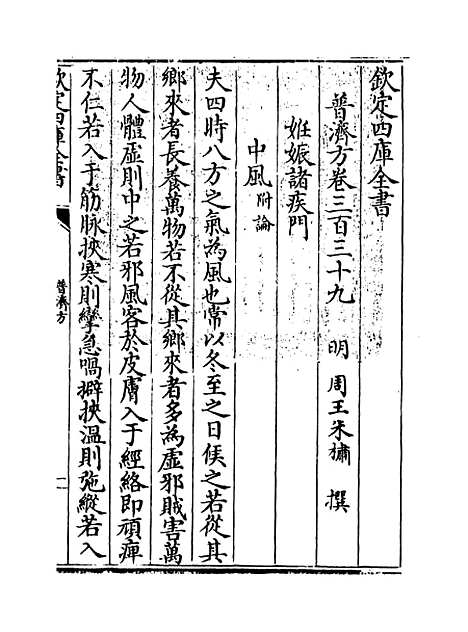 欽定四庫全書
普濟方卷三百三十九 明 周王朱橚 撰
姙娠諸疾門
中風附論
夫四時八方之氣為風也常以冬至之日候之若從其
鄉來者長養萬物若不從其鄉來者多為虛邪賊害萬
物人體虛則中之若邪風客於皮膚入于經絡即頑痺
不仁若入于筋脉挾寒則攣急喎擗挾温則弛縱若入
欽定四庫全書
普濟方
一